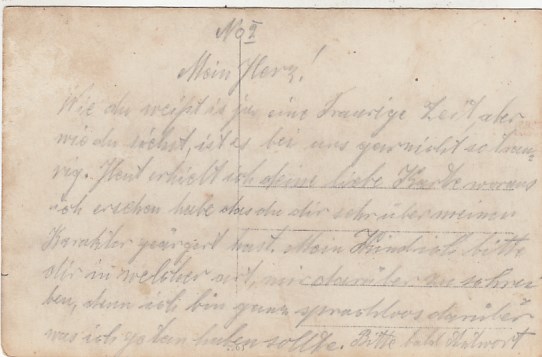 No 2
Mein Herz!
Wie du weißt is ja eine Traurige Zeit aber
wie du siehst, ist es bei uns garnicht so trau-
rig. Heut erhielt ich deine liebe Karte woraus
ich ersehen habe das du dir sehr über meinen
Karakter geärgert hast. Mein Kind ich bitte
dir in welcher art, mir darüber zu schrei
ben, denn ich bin ganz sprachloos darüber
was ich getan haben sollte. Bitte bald Antwort